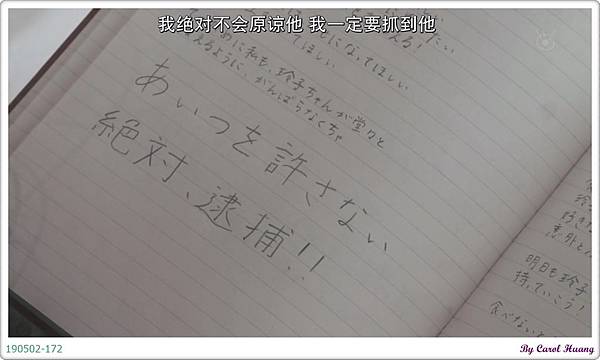 我绝对不会原谅他 我一定要抓到他
になってほしい
てほしい
めに私も、玲子ちゃんが堂々と
えるように、がんばらなくちゃ
あいつを許さない
絶対、逮捕!!
明日も玲子
持っていこう!
食べないと
190502-172
By Carol Huang